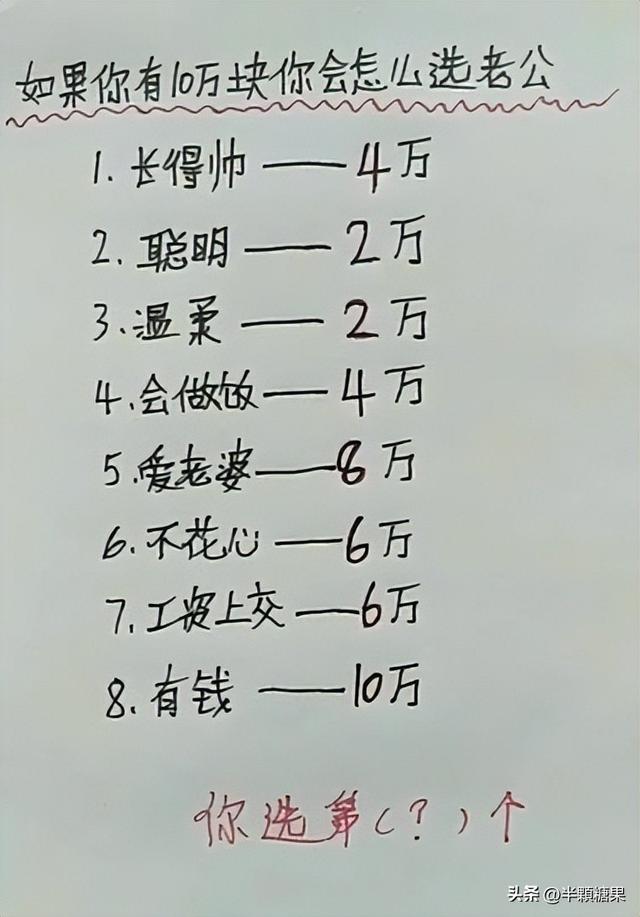 如果你有10万块你会怎么选老公
1.长得帅——4万
2.聪明——2万
3.温柔——2万
4.会做饭——4万
5.爱老婆——8万
6.不花心——6万
7.工资上交——6万
8.有钱——10万
你选第(?)个
头条 @半顆糖果